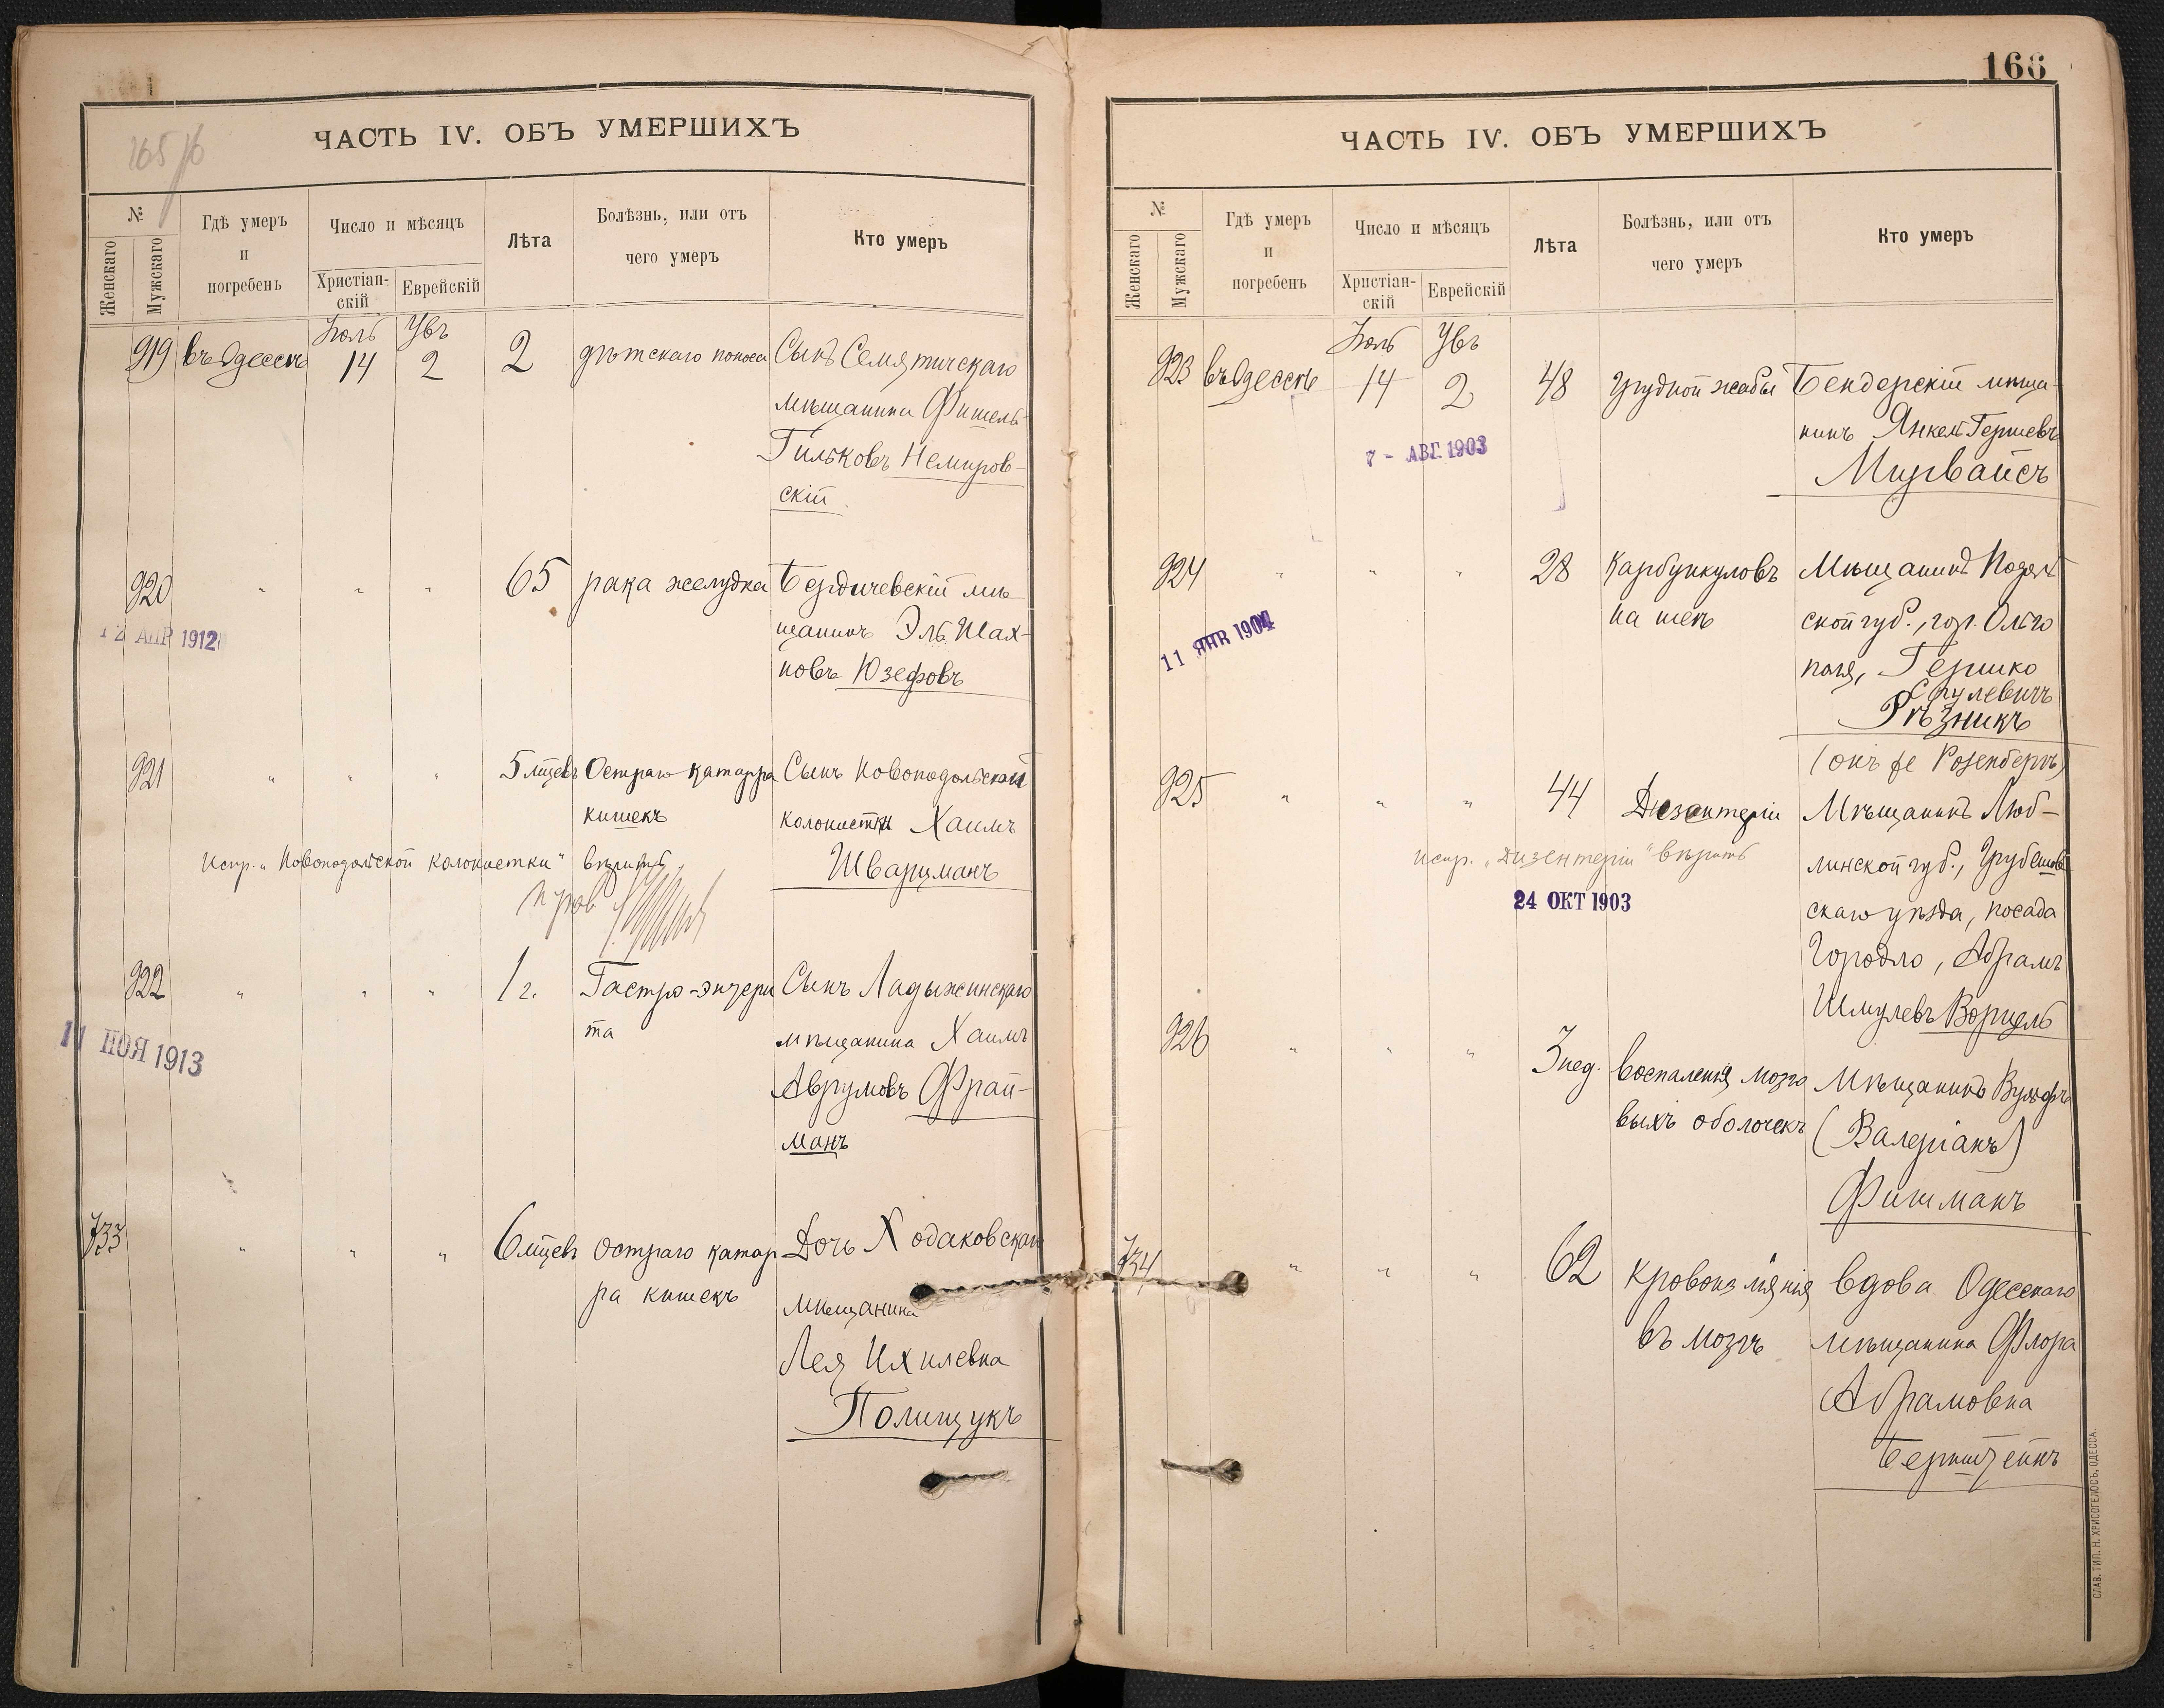 165 /б
ЧАСТЬ IV. ОБЪ УМЕРШИХЪ
№
Женскаго
Мужскаго
Гдѣ умеръ
и
погребенъ
Число и мѣсяцъ
Христіан-
скій
Еврейскій
Лѣта
Болѣзнь, или отъ
чего умеръ
Кто умеръ
919 въ Одессѣ Іюль 14 Увъ 2 2 дѣтскаго поноса Сынъ Семятичскаго
мѣщанина Фишель
Гильковъ Немиров-
скій
920 " " " 65 рака желудка Бердичевскій мѣ-
щанинъ Эль Шах-
новъ Юзефовъ
12 АПР 1912
921 " " " 5 мцевъ Остраго катарра Сынъ Новоподольской
кишекъ колонистки Хаимъ
Шварцманъ
Испр. „Новоподольской колонистки" вѣрить
922 " " " 1 г. Гастро-энтери Сынъ Ладыжинскаго
та мѣщанина Хаимъ
Аврумовъ Фрай-
манъ
11 НОЯ 1913
733 " " " 6 мцевъ Остраго катар Дочь Ходаковскаго
ра кишекъ мѣщанина
Лея Ихилевна
Полищукъ
166
ЧАСТЬ IV. ОБЪ УМЕРШИХЪ
№
Женскаго
Мужскаго
Гдѣ умеръ
и
погребенъ
Число и мѣсяцъ
Христіан-
скій
Еврейскій
Лѣта
Болѣзнь, или отъ
чего умеръ
Кто умеръ
923 въ Одессѣ Іюль 14 Увъ 2 48 Грудной жабы Бендерскій мѣща-
нинъ Янкель Гершевъ
Мирвайсъ
7 - АВГ. 1903
924 " " " 28 Карбункуловъ Мѣщанинъ Подоль
на шеѣ ской губ., гор. Ольго
поля, Гершко
Срулевичъ
Рѣзникъ
(онъ же Розенбергъ)
11 ЯНВ 1904
925 " " " 44 Дизентеріи Мѣщанинъ Люб-
линской губ., Грубешов
скаго уѣзда, посада
Городло, Абрамъ
Шмулевъ Ворцель
испр. „Дизентеріи" вѣрить
24 ОКТ 1903
926 " " " 3 нед. воспаленія мозго Мѣщанинъ Вульфъ
выхъ оболочекъ (Валеріанъ)
Фишманъ
734 " " " 62 Кровоизліянія вдова Одесскаго
въ мозгъ мѣщанина Флора
Абрамовна
Бернштейнъ
СЛАВ. ТИП. Н. ХРИСОГЕЛОСЪ, ОДЕССА.